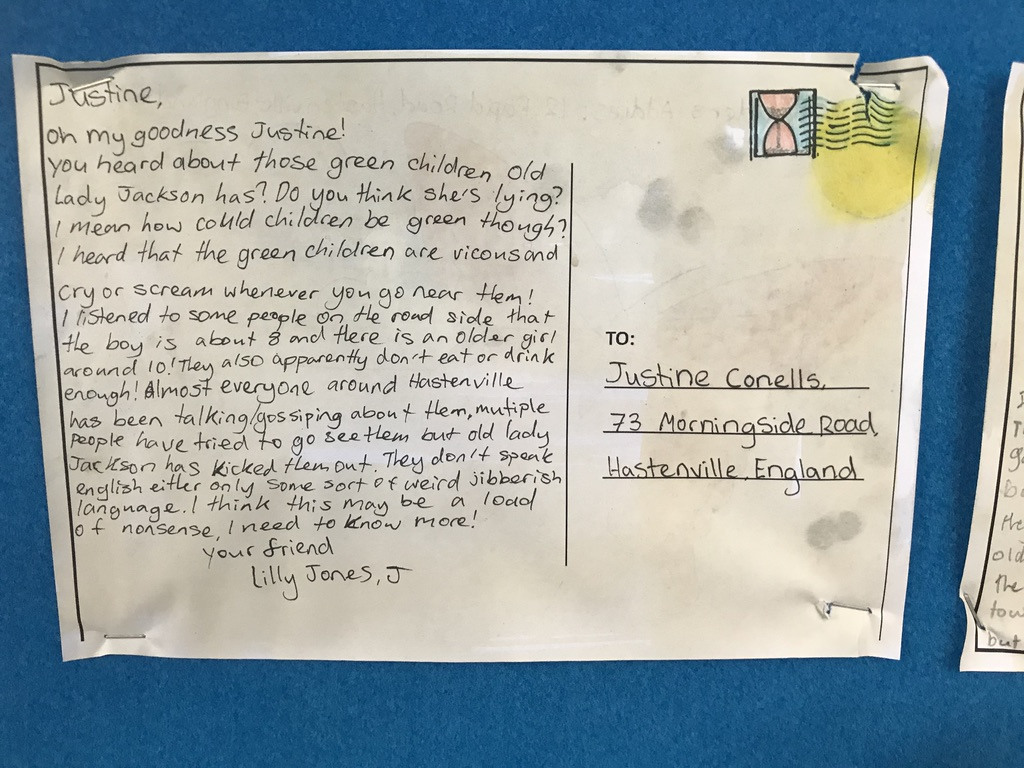 Justine,
oh my goodness Justine!
you heard about those green children old
Lady Jackson has? Do you think she's lying?
I mean how could children be green though?
I heard that the green children are vicous and
cry or scream whenever you go near them!
I listened to some people on the road side that
the boy is about 8 and there is an older girl
around 10! They also apparently don't eat or drink
enough! Almost everyone around Hastenville
has been talking/gossiping about them, mutiple
people have tried to go see them but old lady
Jackson has kicked them out. They don't speak
english either only some sort of weird jibberish
language. I think this may be a load
of nonsense, I need to know more!
your friend
Lilly Jones, J
TO:
Justine Conells,
73 Morningside Road,
Hastenville, England
old
the
tow
but